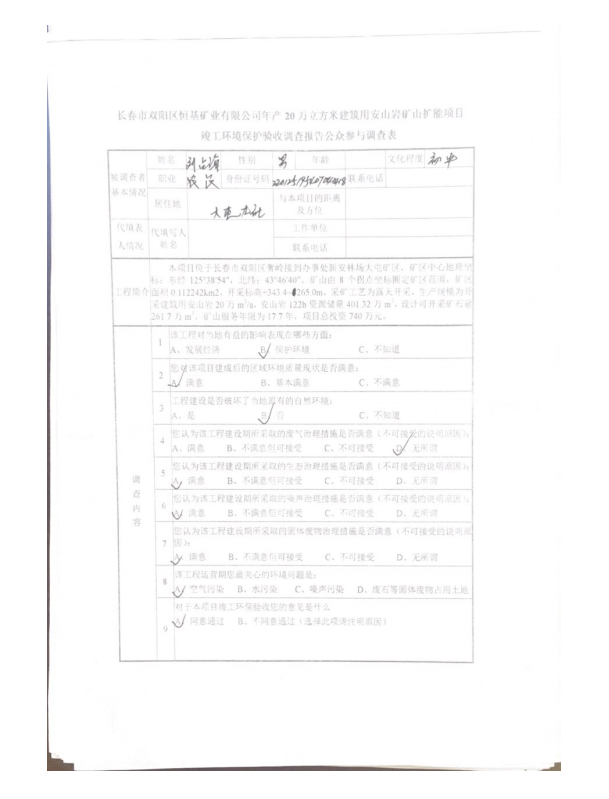 长春市双阳区恒基矿业有限公司年产 20 万立方米建筑用安山岩矿山扩能项目
竣工环境保护验收调查报告公众参与调查表
被调查者基本情况 姓名 性别 男 年龄 文化程度 初中
职业 农民 身份证号码 联系电话
居住地 与本项目的距离及方位
代填表人情况 代填写人姓名 工作单位
联系电话
工程简介
本项目位于长春市双阳区奢岭接到办事处新安林场大屯矿区，矿区中心地理坐
标：东经 125°38′54″，北纬：43°46′40″。矿山由 8 个拐点坐标圈定矿区范围，矿区
面积 0.112242km2，开采标高+343.4-+265.0m，采矿工艺为露天开采，生产规模为开
采建筑用安山岩 20 万 m³/a，安山岩 122b 资源储量 401.32 万 m³，设计可开采矿石量
261.7 万 m³，矿山服务年限为 17.7 年，项目总投资 740 万元。
调查内容
1 该工程对当地有益的影响表现在哪些方面：
A、发展经济 B、保护环境 C、不知道
2 您对该项目建成后的区域环境质量现状是否满意：
A、满意 B、基本满意 C、不满意
3 工程建设是否破坏了当地原有的自然环境：
A、是 B、否 C、不知道
4 您认为该工程建设期所采取的废气治理措施是否满意（不可接受的说明原因）：
A、满意 B、不满意但可接受 C、不可接受 D、无所谓
5 您认为该工程建设期所采取的生态治理措施是否满意（不可接受的说明原因）：
A、满意 B、不满意但可接受 C、不可接受 D、无所谓
6 您认为该工程建设期所采取的噪声治理措施是否满意（不可接受的说明原因）：
A、满意 B、不满意但可接受 C、不可接受 D、无所谓
7 您认为该工程建设期所采取的固体废物治理措施是否满意（不可接受的说明原
因）：
A、满意 B、不满意但可接受 C、不可接受 D、无所谓
8 该工程运营期您最关心的环境问题是：
A、空气污染 B、水污染 C、噪声污染 D、废石等固体废物占用土地
9 对于本项目竣工环保验收您的意见是什么
A、同意通过 B、不同意通过（选择此项请注明原因）